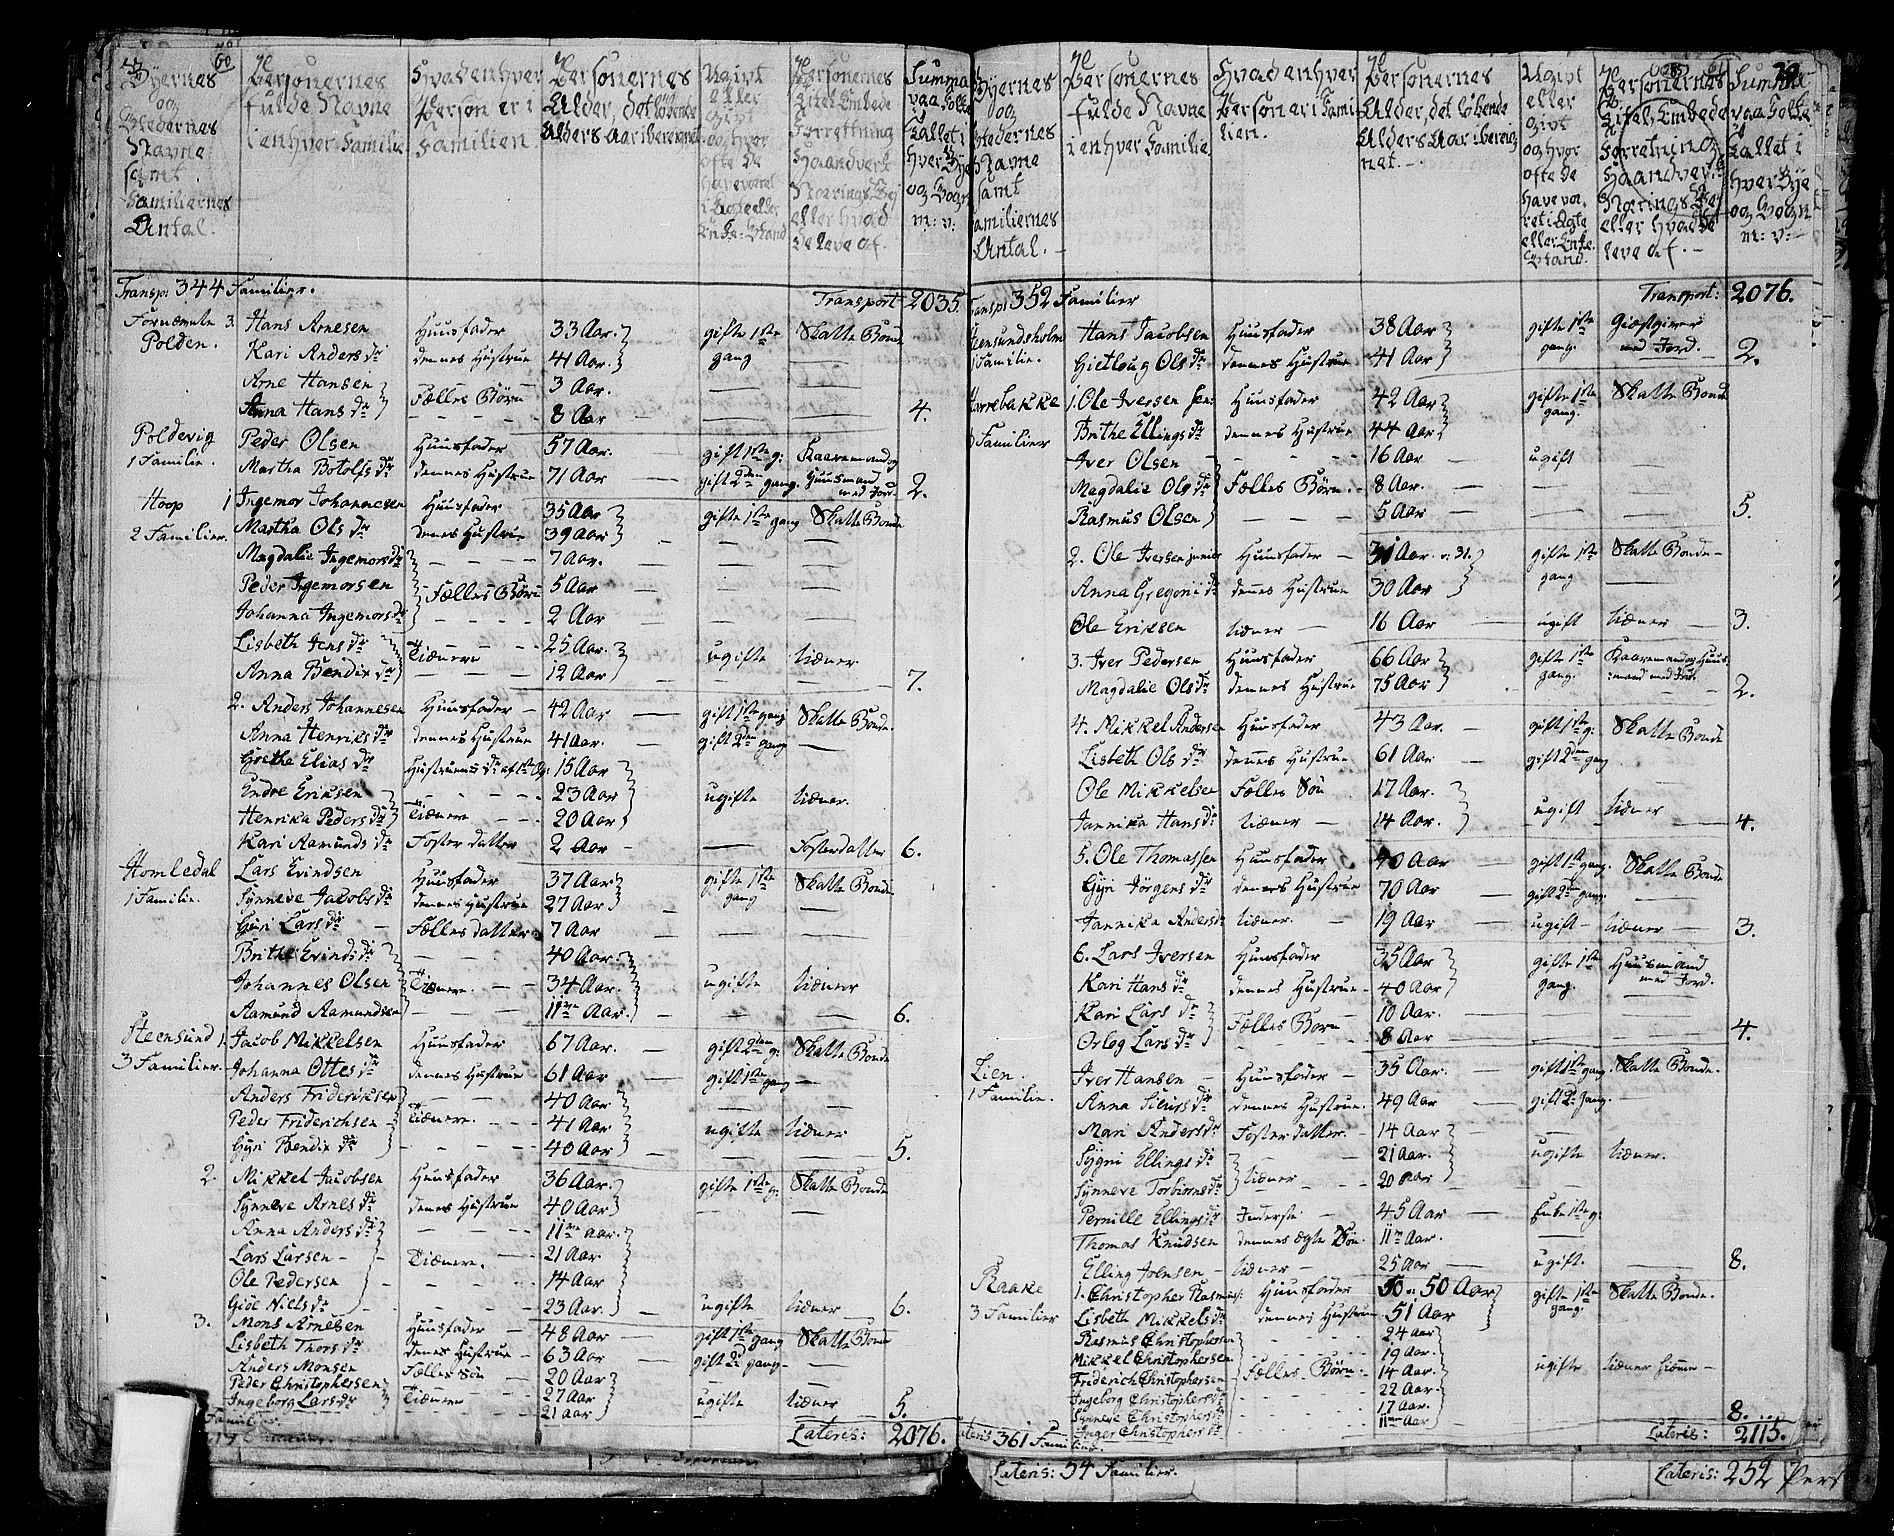 Byernes og Stedernes Navne samt Familiernes Antal.
Personernes fulde Navne i enhver Familie
Hvad enhver Person er i Familien
Personernes Alder, det løbende Alders Aar iberegnet
Ugivt eller givt og hvor ofte de have været i Ægte eller Enke-Stand
Personernes Titel Embede Forretning Haandverk Nærings Vej eller hvad de leve af.
Summa paa Folke Tallet i hver Bye og Sogn
Transp: 344 Familier. Transport 2035.
Fornæmte Polden. 3. Hans Arnesen Huusfader 33 Aar gifte 1ste gang Skatte Bonde
Kari Anders dr dennes Hustrue 41 Aar.
Arne Hansen Fælles Børn 3 Aar.
Anna Hans dr 8 Aar 4.
Poldevig 1 Familie. Peder Olsen Huusfader 57 Aar. gift 1ste g: Kaaremand og Huusmand med Jord.
Martha Botolfs dr dennes Hustrue 71 Aar gift 2den gang. 2.
Hoop 2 Familier. 1 Ingemor Johannesen Huusfader 35 Aar gifte 1ste gang Skatte Bonde
Martha Ols dr dennes Hustrue 39 Aar
Magdalie Ingemors dr 7 Aar.
Peder Ingemorsen Fælles Børn 5 Aar
Johanna Ingemors dr 2 Aar
Lisbeth Jens dr Tiænere 25 Aar. ugifte tiæner
Anna Bendix dr 12 Aar 7.
2. Anders Johannesen Huusfader 42 Aar gift 1ste gang Skatte Bonde.
Anna Henriks dr dennes Hustrue 41 Aar. gift 2den gang
Grethe Elias dr Hustruens dr af 1st Æg: 15 Aar
Endre Eriksen 23 Aar ugifte tiæner.
Henrika Peders dr Tiænere 20 Aar
Kari Aamunds dr Foster datter 2 Aar Fosterdatter 6.
Homledal 1 Familie. Lars Evindsen Huusfader 37 Aar gifte 1ste gang Skatte Bonde
Synneve Jacobs dr dennes Hustrue 27 Aar
Guri Lars dr Fælles datter 7 Aar
Brithe Evinds dr 40 Aar.
Johannes Olsen Tiænere. 34 Aar. ugifte tiæner
Aamund Aamundsen 11ve Aar. 6.
Steensund 3 Familier. 1. Jacob Mikkelsen Huusfader 67 Aar. gift 2den g: Skatte Bonde
Johanna Ottes dr dennes Hustrue 61 Aar gift 1ste gang
Anders Friderichsen 40 Aar
Peder Friderichsen Tiænere. 41 Aar ugifte tiæner
Gyri Bendix dr 40 Aar 5.
2 Mikkel Jacobsen Huusfader 36 Aar. gifte 1ste g. Skatte Bonde
Synneve Arnes dr dennes Hustrue 40 Aar
Anna Anders dr 11ve Aar.
Lars Larsen Tiænere. 21 Aar.
Ole Pedersen 14 Aar
Giøe Niels dr 23 Aar. ugifte tiæner 6.
3. Mons Arnesen Huusfader 48 Aar gift 1ste gang Skatte Bonde
Lisbeth Thors dr dennes Hustrue 63 Aar gift 2den gang
Anders Monsen Fælles Søn 20 Aar
Peder Christophersen Tiænere 27 Aar ugifte tiæner
Ingeborg Lars dr 21 Aar 5.
Lateris: 2076.
Byernes og Stedernes Navne samt Familiernes Antal.
Personernes fulde Navne i enhver Familie.
Hvad enhver Person er i Familien.
Personernes Alder, det løbende Alders Aar iberegnet.
Ugivt eller givt og hvor ofte de have været i Ægte eller Enke Stand.
Personernes Titel, Embede Forretning Haandverk Nærings Vej eller hvad de leve af.
Summa paa Folke Tallet i hver Bye og Sogn
Transp: 352 Familier Transport: 2076.
Steensundsholm 1 Familie. Hans Jacobsen Huusfader 38 Aar gifte 1ste gang. Giæstgiver med Jord.
Giertoug Ols dr dennes Hustrue 41 Aar 2.
Familier 1. Ole Iversen sen: Huusfader 42 Aar gifte 1ste gang. Skatte Bonde
Brithe Ellings dr dennes Hustrue 44 Aar
Iver Olsen 16 Aar ugift
Magdalie Ols dr Fælles Børn. 8 Aar.
Rasmus Olsen 5 Aar 5.
2. Ole Iversen junior Huusfader 31 Aar. gifte 1ste gang Skatte Bonde
Anna Gregorii dr dennes Hustrue 30 Aar
Ole Eriksen tiæner 16 Aar ugift tiæner 3.
3. Iver Pedersen Huusfader 66 Aar gifte 1ste gang. Kaaremand og Huusmand med Jord.
Magdalie Ols dr dennes Hustrue 75 Aar 2.
4. Mikkel Andersen Huusfader 43 Aar gift 1ste g. Skatte Bonde
Lisbeth Ols dr dennes Hustrue 61 Aar gift 2den gang
Ole Mikkelsen Fælles Søn 17 Aar. ugift tiæner
Jannika Hans dr tiæner 14 Aar. 4.
5. Ole Thomassen Huusfader 40 Aar gift 1ste gang. Skatte Bonde
Gyri Jörgens dr dennes Hustrue 70 Aar gift 2den gang.
Jannika Anders dr tiæner. 19 Aar ugift tiæner 3.
6. Lars Iversen Huusfader 35 Aar gifte 1ste gang. Huusmand med Jord.
Kari Hans dr dennes Hustrue 40 Aar
Kari Lars dr Fælles Børn 10 Aar.
Orlog Lars dr 8 Aar 4.
Lien. 1 Familie. Iver Hansen Huusfader 35 Aar. gift 1ste gang. Skatte Bonde.
Anna Siurs dr dennes Hustrue. 49 Aar gift 2. gang.
Mari Anders dr Foster datter. 14 Aar
Sygni Ellings dr 21 Aar. ugifte tiæner.
Synneve Torbiørns dr tiænere 20 Aar
Pernille Ellings dr Inderste 45 Aar Enke 1ste g.
Thomas Knudsen dennes ægte Søn. 11ve Aar.
Elling Joensen tiæner 25 Aar ugift. 8.
Raake 3 Familier 1. Christopher Rasmus: Huusfader 50 Aar gifte 1ste gang. Skatte Bonde.
Lisbeth Mikkels dr dennes Hustrue 51 Aar
Rasmus Christophersen 24 Aar
Mikkel Christophersen 19 Aar.
Friderich Christophersen Fælles Børn 14 Aar. ugifte tiæner hiemme
Ingeborg Christophers dr 22 Aar
Synneve Christophers dr 17 Aar.
Inger Christophers dr 11ve Aar 8.
Lateris 361 Familier. Lateris: 2115.
Lateris: 54 Familier. Lateris: 252 Pers